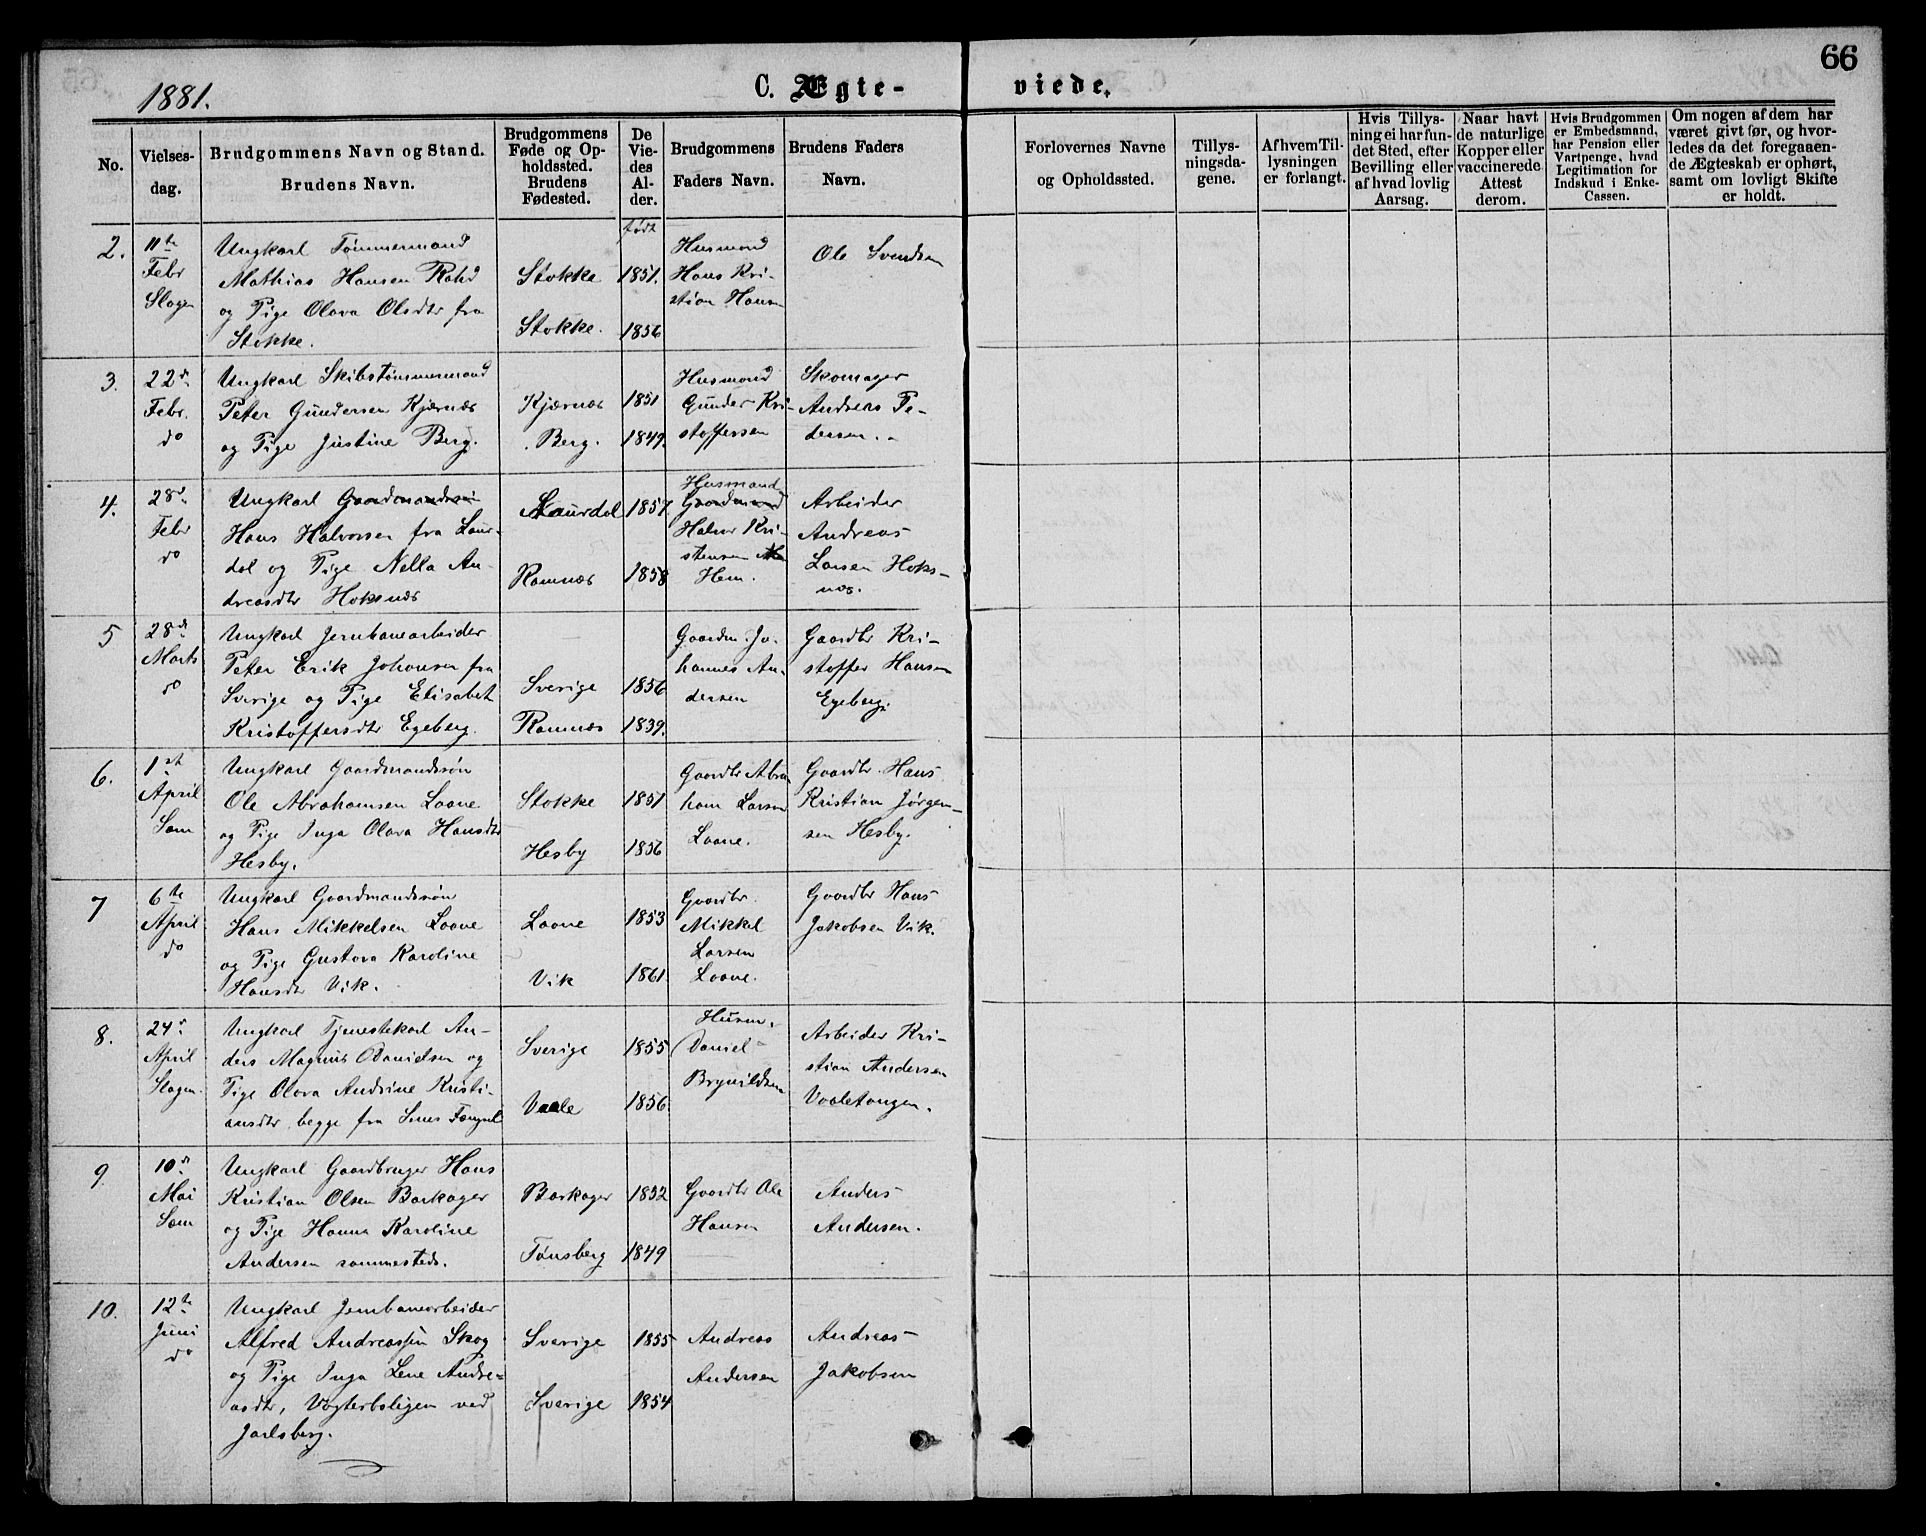 66
1881.
C. Ægte-
viede.
No.
Vielses-
dag.
Brudgommens Navn og Stand.
Brudens Navn.
Brudgommens
Føde og Op-
holdssted.
Brudens
Fødested.
De
Vie-
des
Al-
der.
Brudgommens
Faders Navn.
Brudens Faders
Navn.
Forlovernes Navne
og Opholdssted.
Tillys-
ningsda-
gene.
Af hvem Til-
lysningen
er forlangt.
Hvis Tillys-
ning ei har fun-
det Sted, efter
Bevilling eller
af hvad lovlig
Aarsag.
Naar havt
de naturlige
Kopper eller
vaccinerede
Attest
derom.
Hvis Brudgommen
er Embedsmand,
har Pension eller
Vartpenge, hvad
Legitimation for
Indskud i Enke-
Cassen.
Om nogen af dem har
været givt før, og hvor-
ledes da det foregaaen-
de Ægteskab er ophørt,
samt om lovligt Skifte
er holdt.
født
2.
11te
Febr
Slagen
Ungkarl Tømmermand
Mathias Hansen
og Pige Olava Olsdtr fra
Stokke.
Stokke
Stokke.
1851.
1856
Husmand
Hans Kri-
stian Hansen
Ole Svendsen
3.
22d
Febr.
do
Ungkarl Skibstømmermand
Peter Gundersen Kjærnæs
og Pige Justine Berg.
Kjærnæs
Berg.
1851
1849.
Husmand
Gunder Kri-
stoffersen
Skomager
Andreas Pe-
dersen.
4.
28d
Febr
do
Ungkarl Gaardmandssøn
Hans Halvorsen fra Laur-
dal og Pige Nella An-
dreasdtr Hoksnæs
Laurdal
Ramnæs
1857
1858
Husmand
Gaardmand
Halvor Kri-
stensen
Hem.
Arbeider
Andreas
Larsen Hoks-
næs.
5
28d
Marts
do
Ungkarl Jernbanearbeider
Peter Erik Johansen fra
Sverige og Pige Elisabet
Kristoffersdtr Egeberg.
Sverige
Ramnæs
1856
1839.
Gaardm. Jo-
hannes An-
dersen
Gaardbr Kri-
stoffer Hansen
Egeberg.
6.
1st
April
Sem
Ungkarl Gaardmandssøn
Ole Abrahamsen Laane
og Pige Inga Olava Hansdtr
Hesby.
Stokke
Hesby
1851
1856
Gaardbr Abra
ham Larsen
Laane.
Gaardbr. Hans
Kristian Jørgen-
sen Hesby.
7
6te
April
do
Ungkarl Gaardmandssøn
Hans Mikkelsen Laane
og Pige Gustava Karoline
Hansdtr Vik.
Laane
Vik
1853
1861.
Gaardbr.
Mikkel
Larsen
Laane.
Gaardbr Hans
Jakobsen Vik.
8.
24d
April
Slagen.
Ungkarl Tjenestekarl An-
ders Magnus Danielsen og
Pige Olava Andrine Kristi-
ansdtr. begge fra Sems Fængsel
Sverige
Vaale
1855
1856.
Husm.
Daniel
Brynildsen
Arbeider Kri-
stian Andersen
Vaaletangen.
9.
10d
Mai
Sem
Ungkarl Gaardbruger Hans
Kristian Olsen Barkager
og Pige Hanna Karoline
Andersen sammesteds.
Barkager
Tønsberg
1852
1849
Gaardbr Ole
Hansen
Anders
Andersen.
10.
12te
Juni
do
Ungkarl Jernbanearbeider
Alfred Andreassen Skog
og Pige Inga Lene Andre-
asdtr, Vogterboligen ved
Jarlsberg.
Sverige
Sverige
1855
1854
Andreas
Andersen
Andreas
Jakobsen